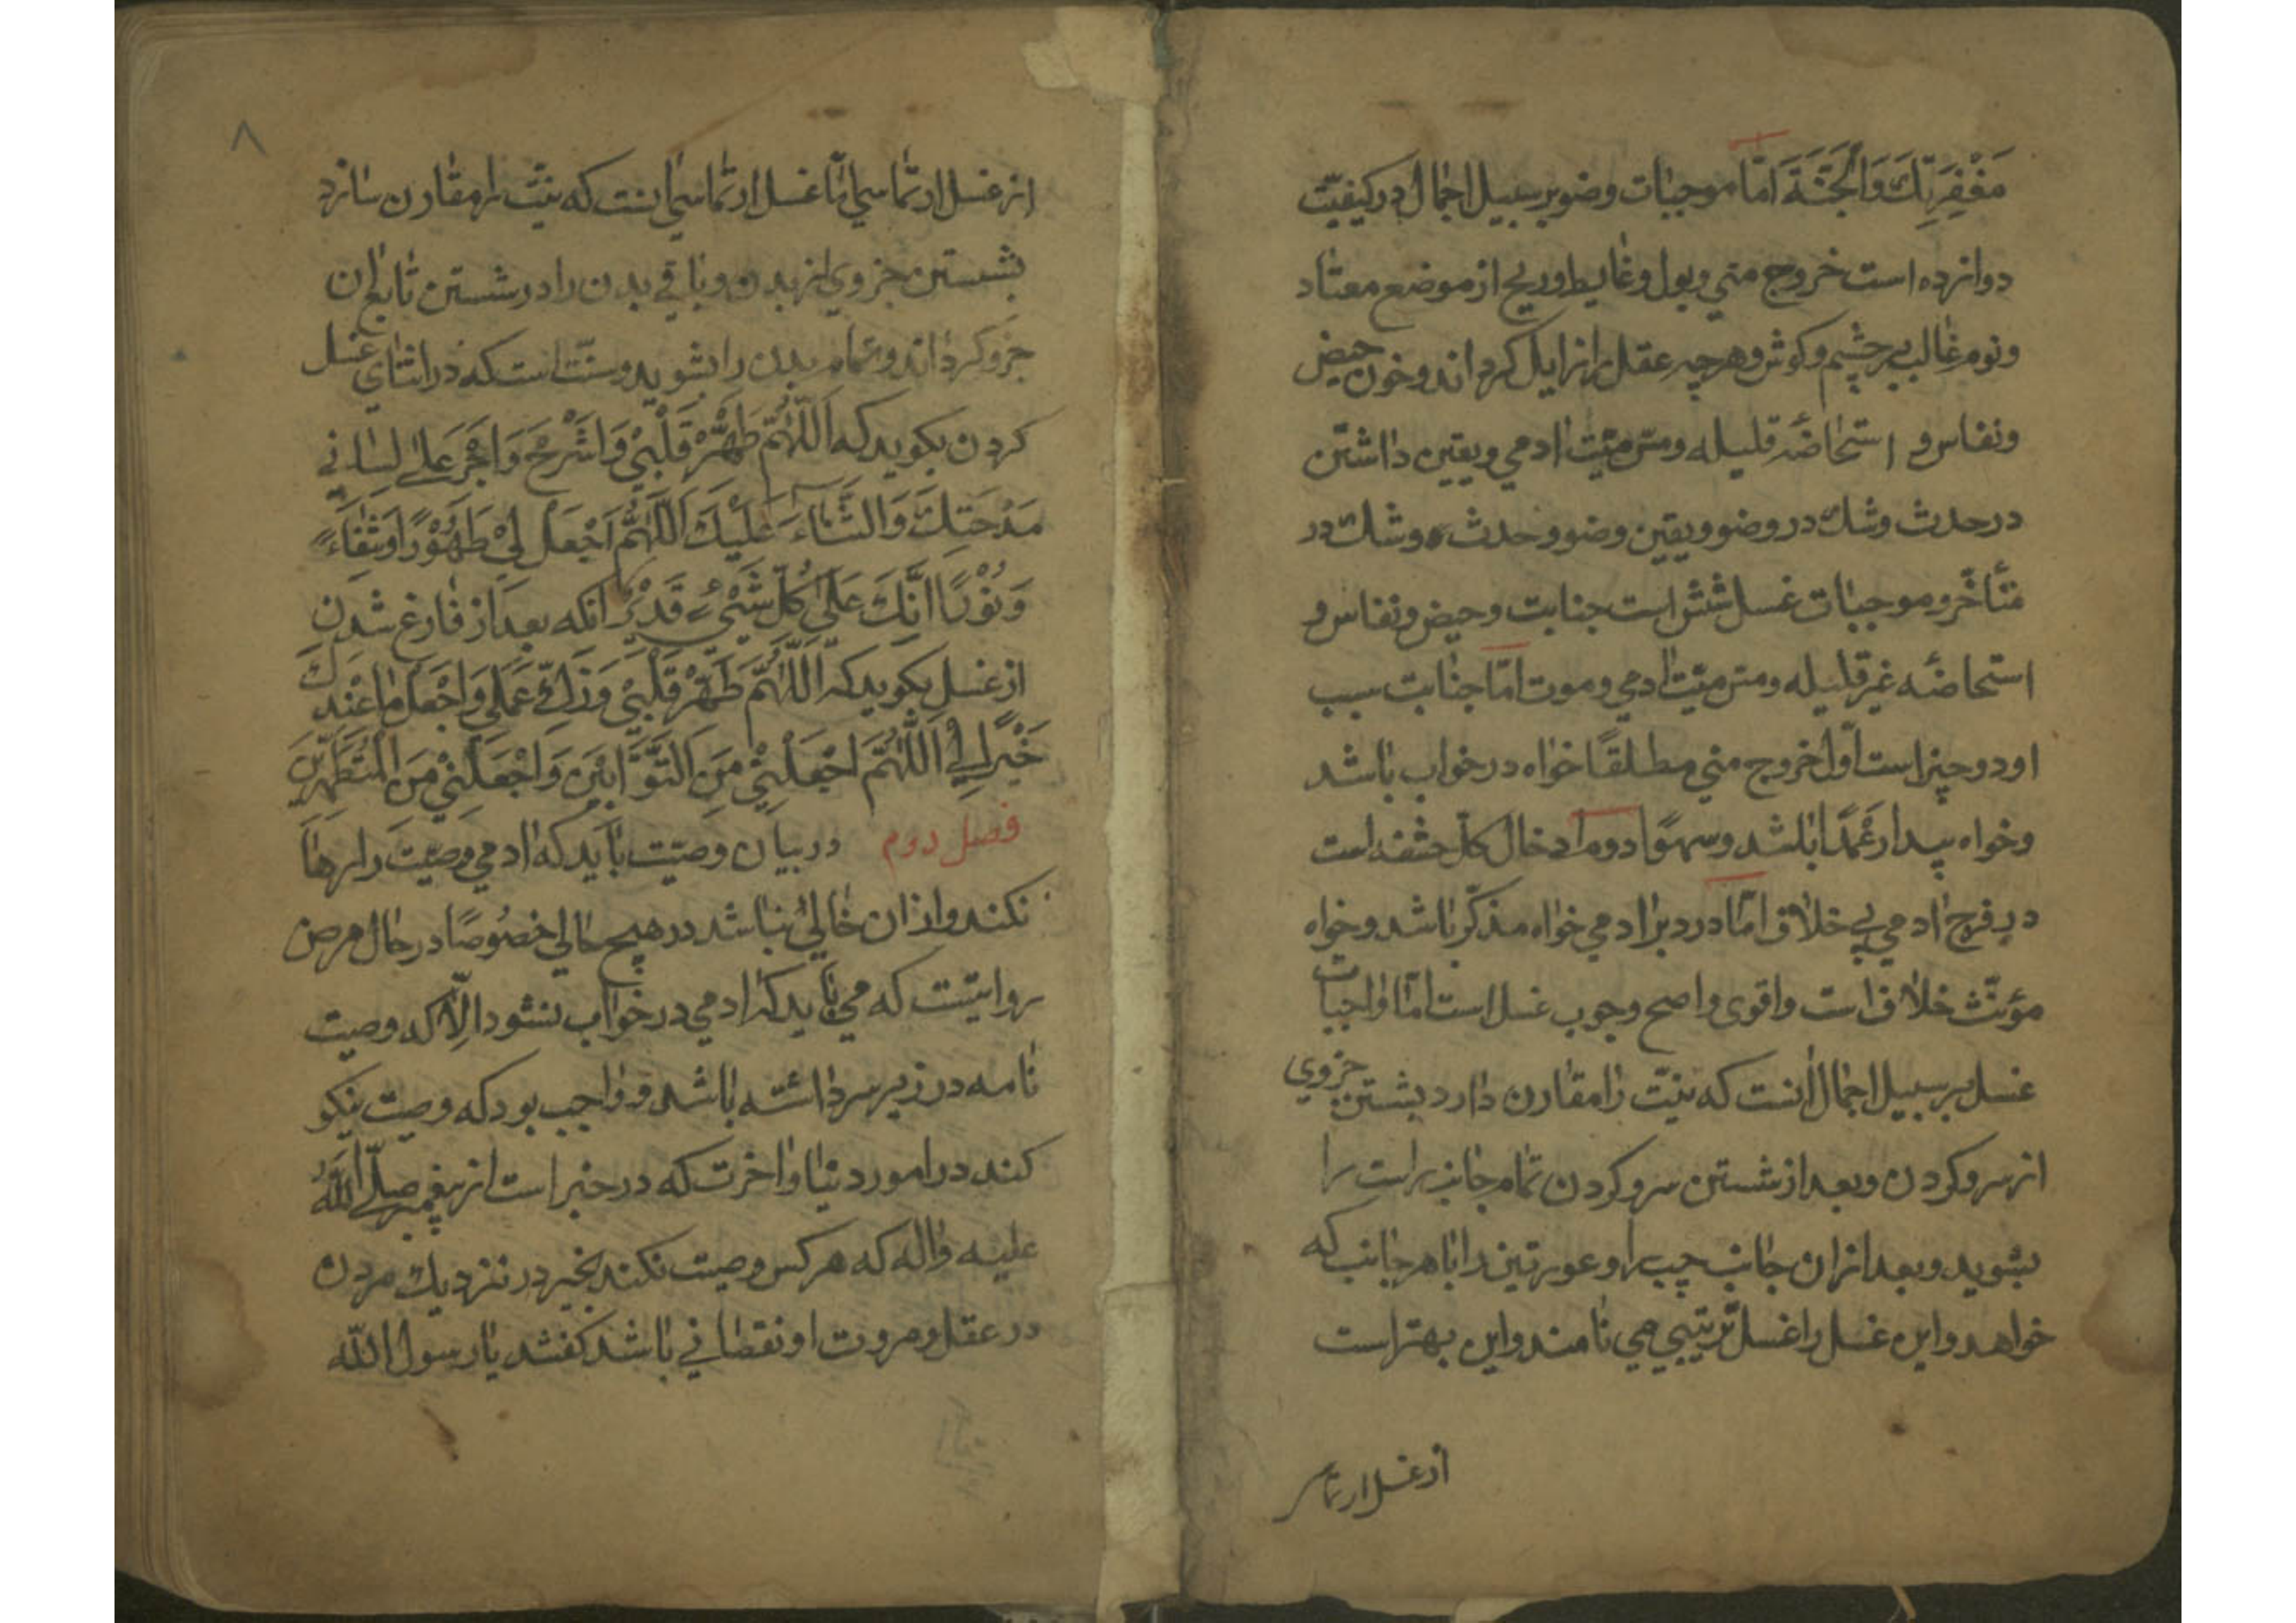 مَغْفِرَتِكَ وَالْجَنَّةَ امّا موجبات وضو بر سبیل اجمال در کیفیّت
دوانزده است خروج منی و بول و غایط و ریح از موضع معتاد
و نوم غالب بر چشم و کوش و هرچه عقل را زایل کرداند و خون حیض
و نفاس و استحاضهٔ قلیله و مسّ میّت ادمی و یقین داشتن
در حدث و شک در وضو و یقین وضو و حدث و شک در
متأخّر و موجبات غسل شش است جنابت و حیض و نفاس و
استحاضهٔ غیر قلیله و مسّ میّت ادمی و موت امّا جنابت سبب
او دو چیز است اوّل خروج منی مطلقًا خواه در خواب باشد
و خواه بیدار عَمدًا باشد و سهوًا دوم ادخال کلّ حشفه است
در فرج ادمی بی خلاف امّا در دبر ادمی خواه مذکّر باشد و خواه
مؤنّث خلاف است و اقوی و اصح وجوب غسل است امّا واجبات
غسل بر سبیل اجمال انست که نیّت را مقارن دارد بشستن جزوی
از سر و کردن و بعد از شستن سر و کردن تمام جانب راست را
بشوید و بعد از ان جانب چپ را و عورتین را با هر جانب که
خواهد و این غسل را غسل ترتیبی می نامند و این بهتر است
از غسل ارتماسی
۸
از غسل ارتماسی امّا غسل ارتماسی انست که نیّت را مقارن سازد
بشستن جزوی از بدن و باقی بدن را در شستن تابع ان
جزو کرداند و تمام بدن را بشوید و سنّت است که در اثنای غسل
کردن بکوید که اَللّٰهُمَّ طَهِّرْ قَلْبِیْ وَاشْرَحْ وَاَجْرِ عَلٰی لِسَانِی
مَدْحَتِکَ وَالثَّنَآءَ عَلَیْکَ اَللّٰهُمَّ اجْعَلْ لِیْ طَهُوْرًا وَشِفَآءً
وَنُوْرًا اِنَّکَ عَلٰی کُلِّ شَیْءٍ قَدِیْرٌ انکه بعد از فارغ شدن
از غسل بکوید که اَللّٰهُمَّ طَهِّرْ قَلْبِیْ وَزَکِّ عَمَلِی وَاجْعَلْ مٰا عِنْدَکَ
خَیْرًا لِی اَللّٰهُمَّ اجْعَلْنِیْ مِنَ التَّوَّابِیْنَ وَاجْعَلْنِیْ مِنَ الْمُتَطَهِّرِیْنَ
فصل دوم در بیان وصیّت باید که ادمی وصیّت را رها
نکند و از ان خالی نباشد در هیچ حالی خصُوصًا در حال مرض
روایتست که می باید که ادمی در خواب نشود الّا که وصیت
نامه در زیر سر داشته باشد و واجب بود که وصیت نیکو
کند در امور دنیا و اخرت که در خبر است از پیغمبر صلّی اللّٰهُ
علیه واله که هر کس وصیت نکند بخیر در نزدیک مردن
در عقل و مروت او نقصانی باشد کفتند یا رسول اللّٰه